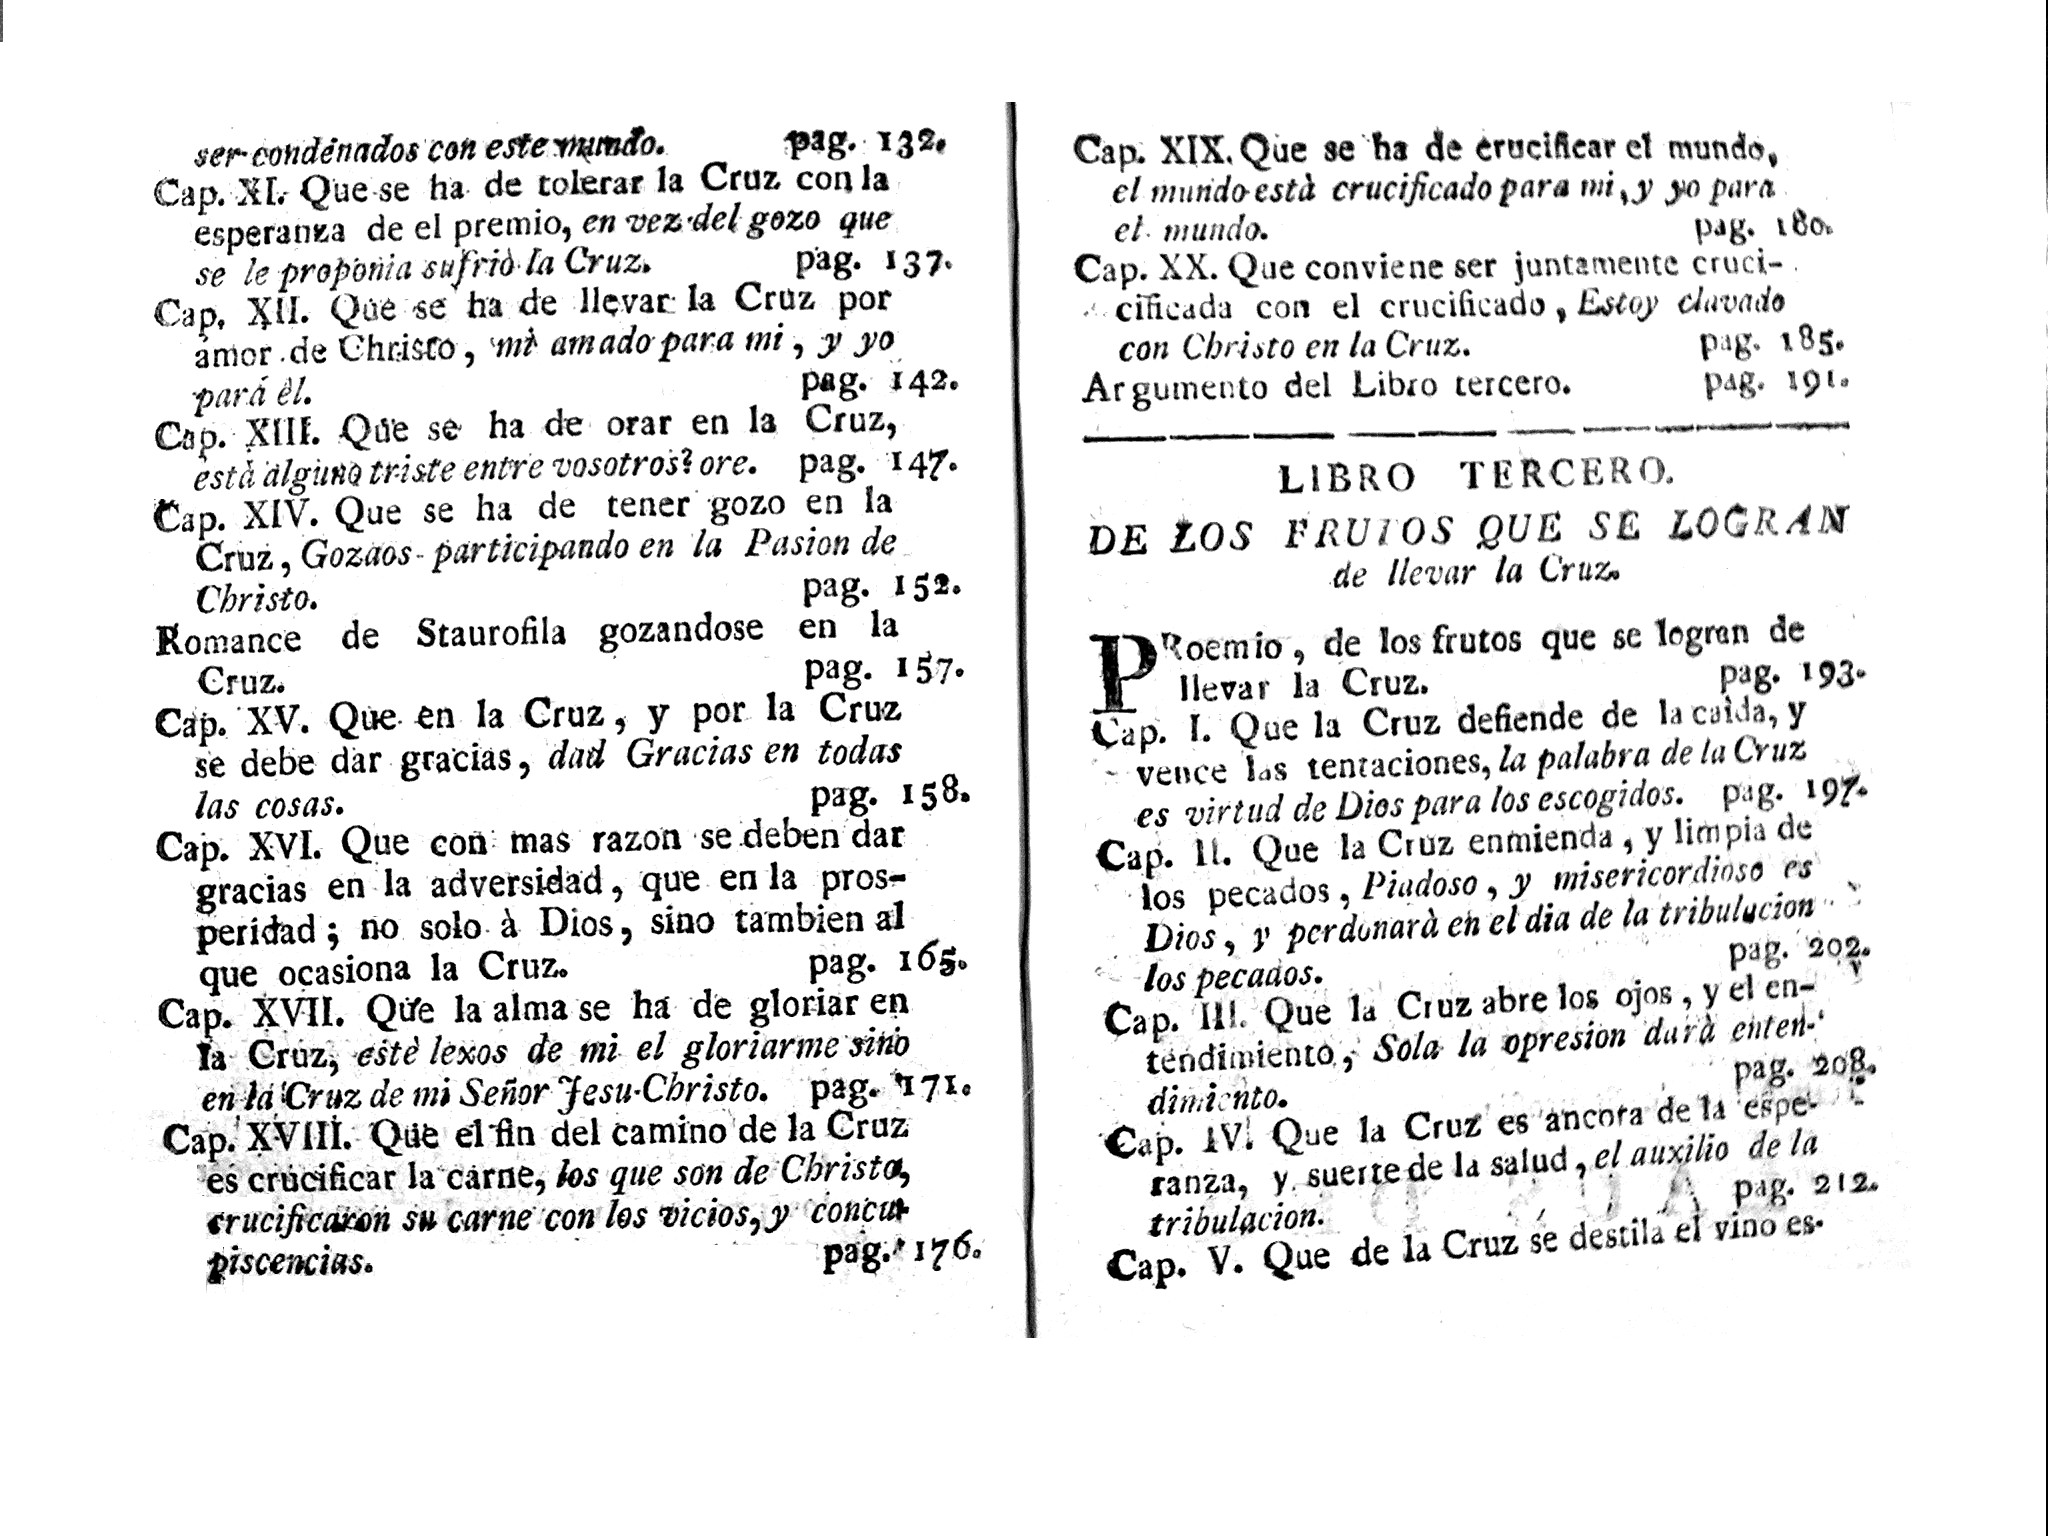 ser condenados con este mundo. pag. 132.
Cap. XI. Que se ha de tolerar la Cruz con la
esperanza de el premio, en vez del gozo que
se le proponia sufriò la Cruz. pag. 137.
Cap. XII. Que se ha de llevar la Cruz por
amor de Christo, mi amado para mi, y yo
para èl. pag. 142.
Cap. XIII. Que se ha de orar en la Cruz,
està alguno triste entre vosotros? ore. pag. 147.
Cap. XIV. Que se ha de tener gozo en la
Cruz, Gozaos participando en la Pasion de
Christo. pag. 152.
Romance de Staurofila gozandose en la
Cruz. pag. 157.
Cap. XV. Que en la Cruz, y por la Cruz
se debe dar gracias, dad Gracias en todas
las cosas. pag. 158.
Cap. XVI. Que con mas razon se deben dar
gracias en la adversidad, que en la pros-
peridad; no solo à Dios, sino tambien al
que ocasiona la Cruz. pag. 165.
Cap. XVII. Que la alma se ha de gloriar en
la Cruz, estè lexos de mi el gloriarme sino
en la Cruz de mi Señor Jesu-Christo. pag. 171.
Cap. XVIII. Que el fin del camino de la Cruz
es crucificar la carne, los que son de Christo,
crucificaron su carne con los vicios, y concu-
piscencias. pag. 176.
Cap. XIX. Que se ha de crucificar el mundo,
el mundo està crucificado para mi, y yo para
el mundo. pag. 180.
Cap. XX. Que conviene ser juntamente cruci-
cificada con el crucificado, Estoy clavado
con Christo en la Cruz. pag. 185.
Argumento del Libro tercero. pag. 191.
LIBRO TERCERO.
DE LOS FRUTOS QUE SE LOGRAN
de llevar la Cruz.
PRoemio, de los frutos que se logran de
llevar la Cruz. pag. 193.
Cap. I. Que la Cruz defiende de la caìda, y
vence las tentaciones, la palabra de la Cruz
es virtud de Dios para los escogidos. pag. 197.
Cap. II. Que la Cruz enmienda, y limpia de
los pecados, Piadoso, y misericordioso es
Dios, y perdonarà en el dia de la tribulacion
los pecados. pag. 202.
Cap. III. Que la Cruz abre los ojos, y el en-
tendimiento, Sola la opresion darà enten-
dimiento. pag. 208.
Cap. IV. Que la Cruz es ancora de la espe-
ranza, y suerte de la salud, el auxilio de la
tribulacion. pag. 212.
Cap. V. Que de la Cruz se destila el vino es-